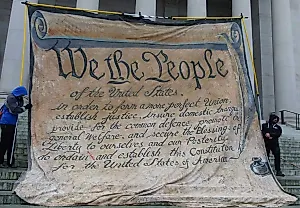 We the People
of the United States,
in order to form a more perfect Union,
establish justice, insure domestic tranqu
provide for the common defence, promote
general welfare, and secure the Blessings of
Liberty to ourselves and our Posterity
do ordain and establish this Constitution
for the United States of America